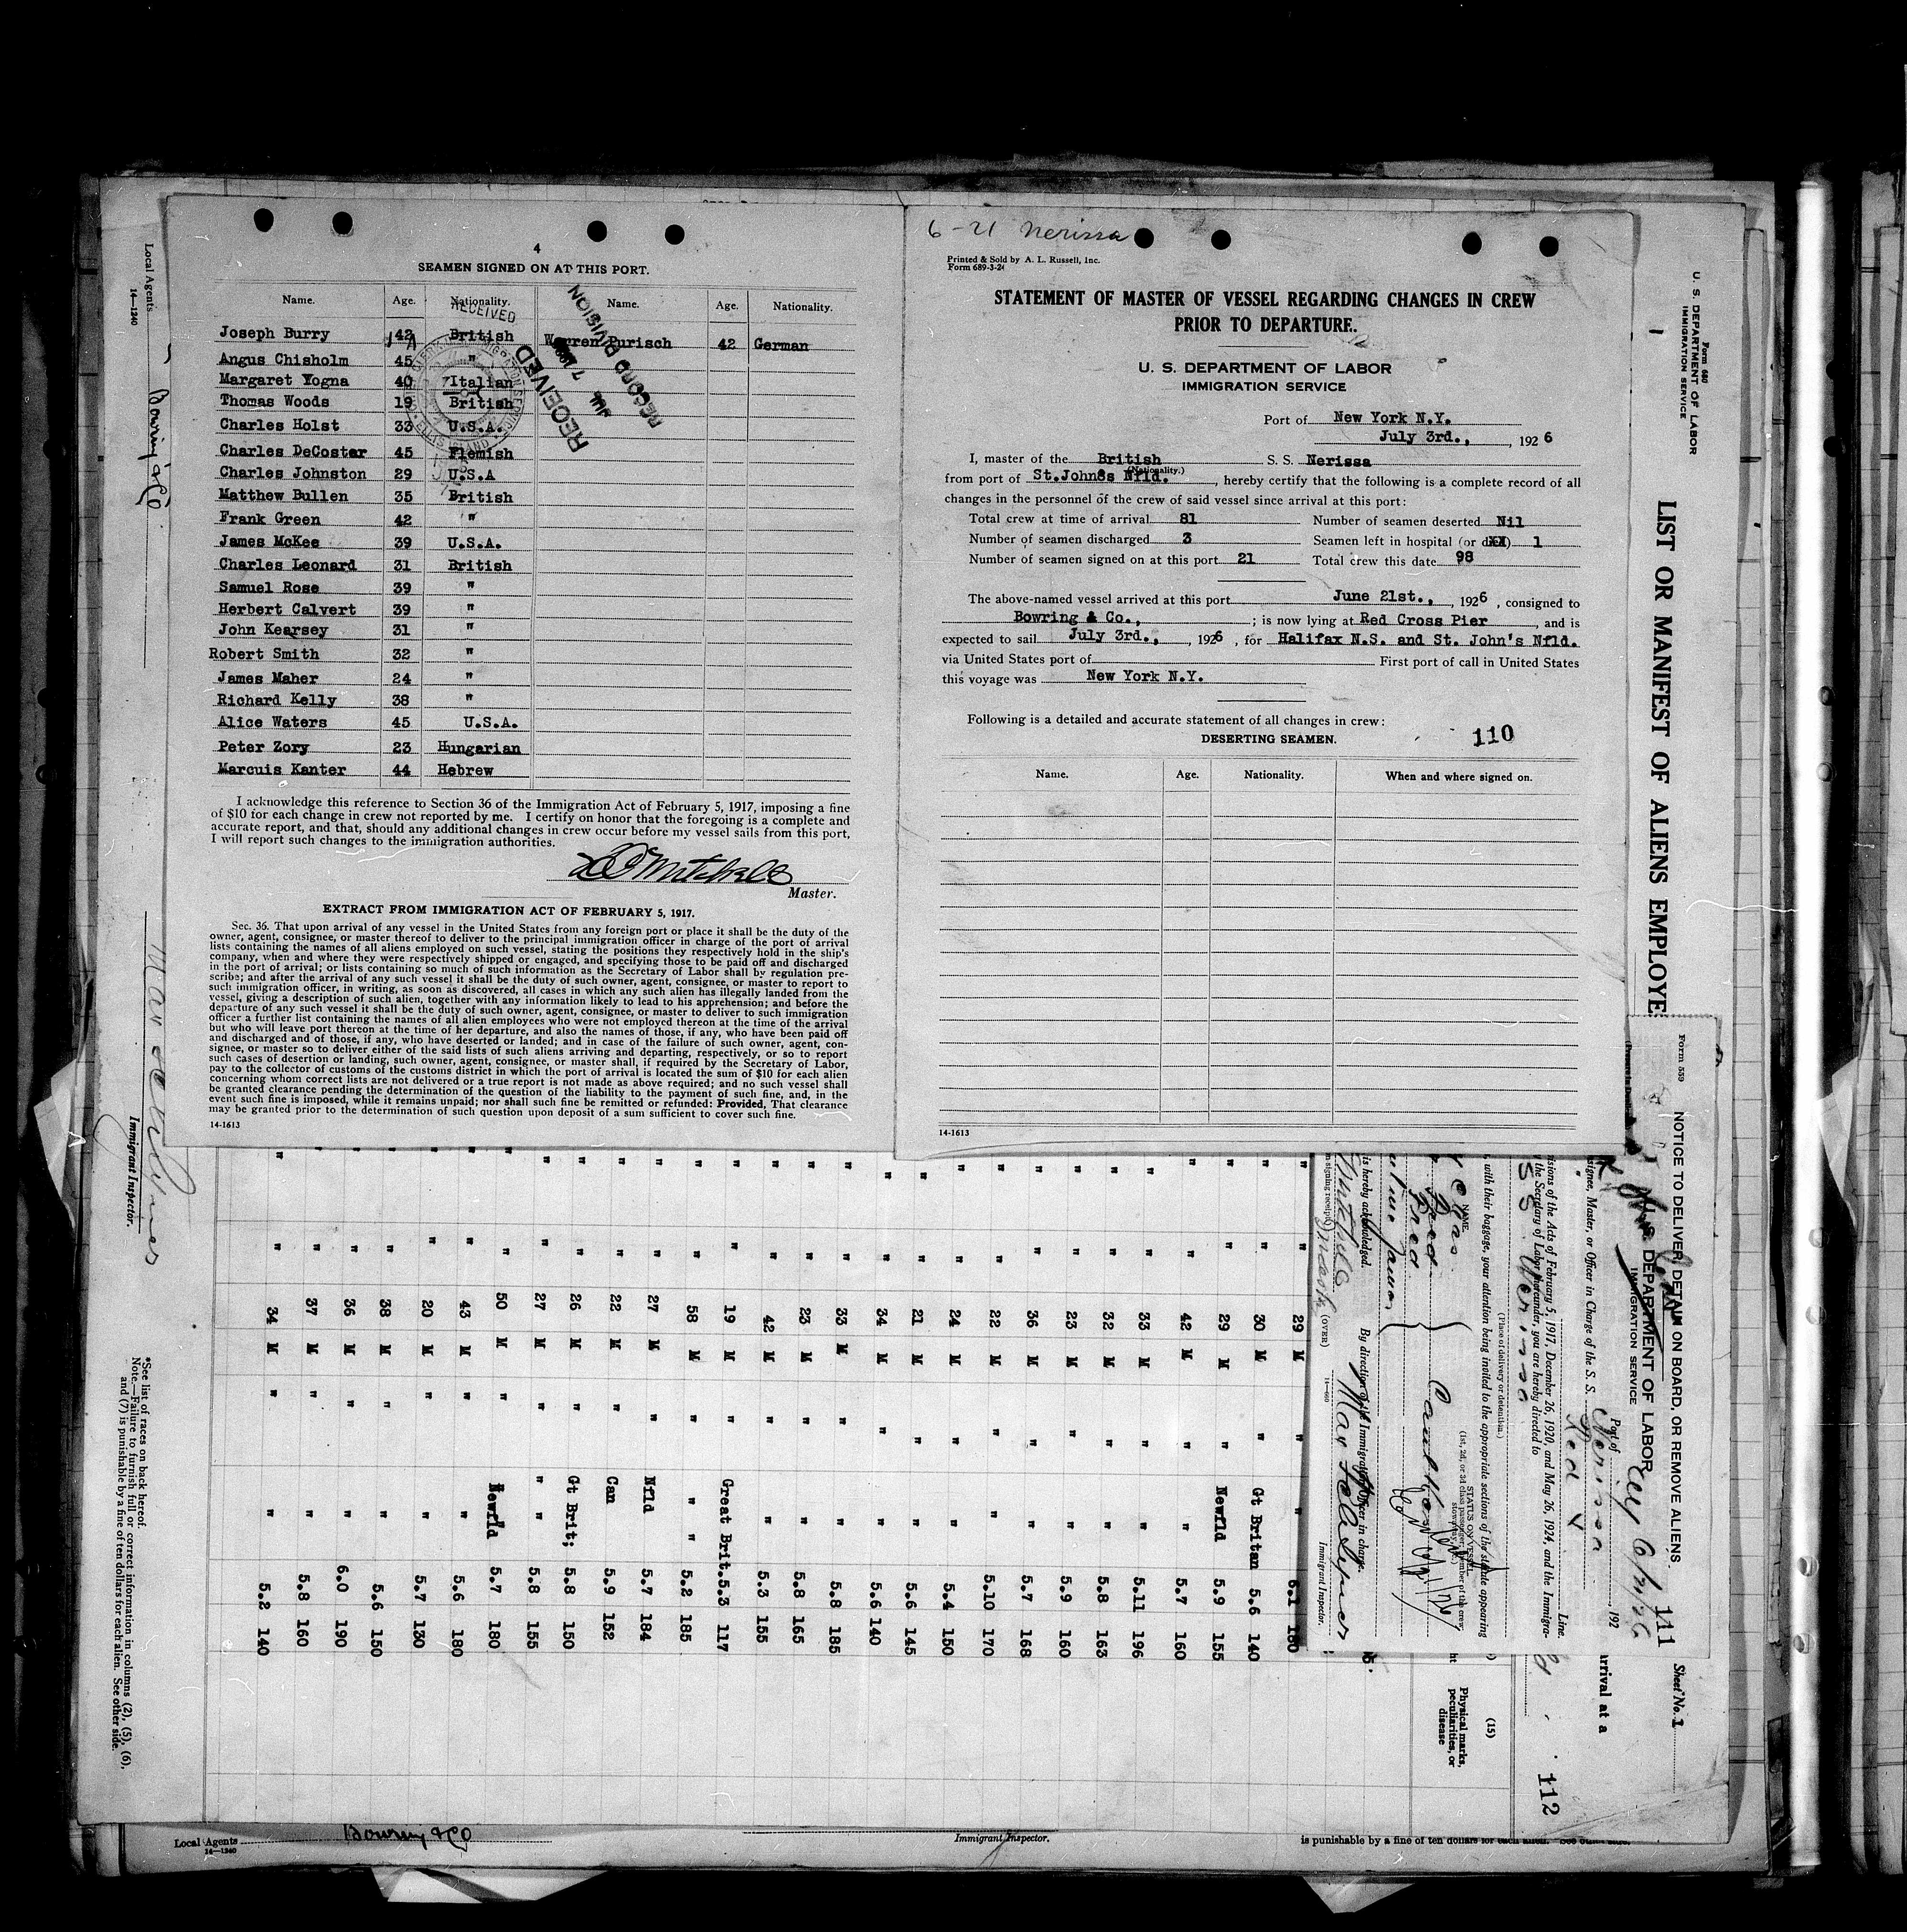 4
SEAMEN SIGNED ON AT THIS PORT.
Name. Age. Nationality. Name. Age. Nationality.
RECEIVED
Joseph Burry 42 British Warren Purisch 42 German
Angus Chisholm 45 "
Margaret Yogna 40 Italian
Thomas Woods 19 British
Charles Holst 33 U.S.A.
Charles DeCoster 45 Flemish
Charles Johnston 29 U.S.A
Matthew Bullen 35 British
Frank Green 42 "
James McKee 39 U.S.A.
Charles Leonard 31 British
Samuel Rose 39 "
Herbert Calvert 39 "
John Kearsey 31 "
Robert Smith 32 "
James Maher 24 "
Richard Kelly 38 "
Alice Waters 45 U.S.A.
Peter Zory 23 Hungarian
Marcuis Kanter 44 Hebrew
RECEIVED
RECORD DIVISION
I acknowledge this reference to Section 36 of the Immigration Act of February 5, 1917, imposing a fine
of $10 for each change in crew not reported by me. I certify on honor that the foregoing is a complete and
accurate report, and that, should any additional changes in crew occur before my vessel sails from this port,
I will report such changes to the immigration authorities.
Mitchell
Master.
EXTRACT FROM IMMIGRATION ACT OF FEBRUARY 5, 1917.
Sec. 36. That upon arrival of any vessel in the United States from any foreign port or place it shall be the duty of the
owner, agent, consignee, or master thereof to deliver to the principal immigration officer in charge of the port of arrival
lists containing the names of all aliens employed on such vessel, stating the positions they respectively hold in the ship's
company, when and where they were respectively shipped or engaged, and specifying those to be paid off and discharged
in the port of arrival; or lists containing so much of such information as the Secretary of Labor shall by regulation pre-
scribe; and after the arrival of any such vessel it shall be the duty of such owner, agent, consignee, or master to report to
such immigration officer, in writing, as soon as discovered, all cases in which any such alien has illegally landed from the
vessel, giving a description of such alien, together with any information likely to lead to his apprehension; and before the
departure of any such vessel it shall be the duty of such owner, agent, consignee, or master to deliver to such immigration
officer a further list containing the names of all alien employees who were not employed thereon at the time of the arrival
but who will leave port thereon at the time of her departure, and also the names of those, if any, who have been paid off
and discharged and of those, if any, who have deserted or landed; and in case of the failure of such owner, agent, con-
signee, or master so to deliver either of the said lists of such aliens arriving and departing, respectively, or so to report
such cases of desertion or landing, such owner, agent, consignee, or master shall, if required by the Secretary of Labor,
pay to the collector of customs of the customs district in which the port of arrival is located the sum of $10 for each alien
concerning whom correct lists are not delivered or a true report is not made as above required; and no such vessel shall
be granted clearance pending the determination of the question of the liability to the payment of such fine, and, in the
event such fine is imposed, while it remains unpaid; nor shall such fine be remitted or refunded: Provided, That clearance
may be granted prior to the determination of such question upon deposit of a sum sufficient to cover such fine.
14-1613
6-21 Nerissa
Printed & Sold by A. L. Russell, Inc.
Form 689-3-24
STATEMENT OF MASTER OF VESSEL REGARDING CHANGES IN CREW
PRIOR TO DEPARTURE.
U. S. DEPARTMENT OF LABOR
IMMIGRATION SERVICE
Port of New York N.Y.
July 3rd., , 1926
I, master of the British S. S. Nerissa
(Nationality.)
from port of St.John8s Nfld. , hereby certify that the following is a complete record of all
changes in the personnel of the crew of said vessel since arrival at this port:
Total crew at time of arrival 81 Number of seamen deserted Nil
Number of seamen discharged 3 Seamen left in hospital (or died) 1
Number of seamen signed on at this port 21 Total crew this date 98
The above-named vessel arrived at this port June 21st., , 1926 , consigned to
Bowring & Co., ; is now lying at Red Cross Pier , and is
expected to sail July 3rd., , 1926 , for Halifax N.S. and St. John's Nfld.
via United States port of First port of call in United States
this voyage was New York N.Y.
Following is a detailed and accurate statement of all changes in crew:
DESERTING SEAMEN.
110
Name. Age. Nationality. When and where signed on.
14-1613
Form 680
U. S. DEPARTMENT OF LABOR
IMMIGRATION SERVICE
LIST OR MANIFEST OF ALIENS EMPLOYE
Form 539
NOTICE TO DELIVER, DETAIN ON BOARD, OR REMOVE ALIENS
111
U. S. DEPARTMENT OF LABOR
IMMIGRATION SERVICE
Port of
192
signee, Master, or Officer in Charge of the S. S. Nerissa
Line.
visions of the Acts of February 5, 1917, December 26, 1920, and May 26, 1924, and the Immigra-
the Secretary of Labor thereunder, you are hereby directed to
SS Nerissa
(Place of delivery or detention.)
, with their baggage, your attention being invited to the appropriate sections of the statute appearing
NAME. STATUS ON VESSEL.
is hereby acknowledged. By direction of the Immigration Officer in charge.
(OVER)
Immigrant Inspector.
Sheet No. 1
arrival at a
112
(15)
Physical marks, peculiarities, or disease
29 M " " 5.1 180
30 M " Gt Britan 5.6 140
29 M " Newfld 5.9 155
42 M " " 5.7 160
33 M " " 5.11 196
32 M " " 5.8 163
23 M " " 5.9 160
36 M " " 5.7 168
22 M " " 5.10 170
24 M " " 5.4 150
21 M " " 5.6 145
34 M " " 5.6 140
33 M " " 5.8 185
23 M " " 5.8 165
42 M " " 5.3 155
19 M " Great Brit. 5.3 117
58 M " " " 5.2 185
27 M " Nfld 5.7 184
22 M " Can 5.9 152
26 M " Gt Brit; 5.8 150
27 M " " " 5.8 155
50 M " Newfld 5.7 180
43 M " " 5.6 180
20 M " " 5.7 130
38 M " " 5.6 150
36 M " " 6.0 190
37 M " " 5.8 160
34 M " " 5.2 140
Local Agents Bowring & Co
14—1240
Immigrant Inspector.
*See list of races on back hereof.
Note.—Failure to furnish full or correct information in columns (2), (5), (6),
and (7) is punishable by a fine of ten dollars for each alien. See other side.
Local Agents Bowring & Co
14—1240
Immigrant Inspector.
is punishable by a fine of ten dollars for each alien. See other side.